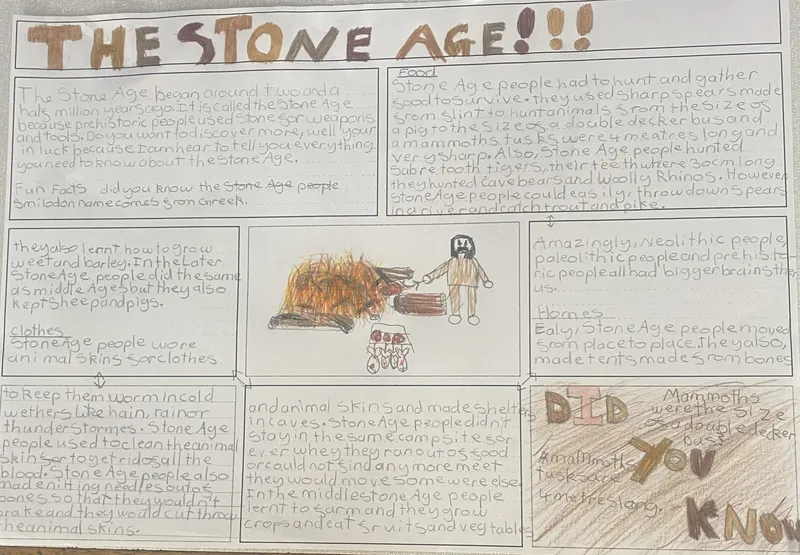 THE STONE AGE!!!
The Stone Age began around two and a
half million years ago. It is called the Stone Age
because prehistoric people used stone for weapons
and tools. Do you want to discover more, well your
in luck because I am hear to tell you everything
you need to know about the Stone Age.
Fun Facts did you know the Stone Age people
smilodon name comes from Greek.
Food
Stone Age people had to hunt and gather
food to survive. They used sharp spears made
from flint to hunt animals from the size of
a pig to the size of a double decker bus and
a mammoths tusks were 4 meatres long and
very sharp. Also, Stone Age people hunted
Sabre tooth tigers, their teeth where 30cm long
they hunted cave bears and Woolly Rhinos. However
Stone Age people could easily, throw down spears
in a river and catch trout and pike.
they also lernt how to grow
weet and barley. In the Later
Stone Age people did the same
as middle Ages but they also
kept sheep and pigs.
clothes
Stone Age people wore
animal skins for clothes
Amazingly, Neolithic people,
paleolithic people and prehisto-
ric people all had bigger brains then
us.
Homes
Ealy, Stone Age people moved
from place to place. They also,
made tents made from bones
to keep them worm in cold
wethers like hain, rain or
thunderstormes. Stone Age
people used to clean the animal
skin for to get rid of all the
blood. Stone Age people also
made nitting needles out of
bones so that they wouldn't
brake and they would cut throu
the animal skins.
and animal skins and made shelters
in caves. Stone Age people didn't
stay in the same campsite for
ever whey they ran out of food
or could not find any more meet
they would move some were else.
In the middle stone Age people
lernt to farm and they grow
crops and eat fruits and vegtables
DID
YOU
KNOW
Mammoths
were the size
of a double decker
bus?
4 metres long.